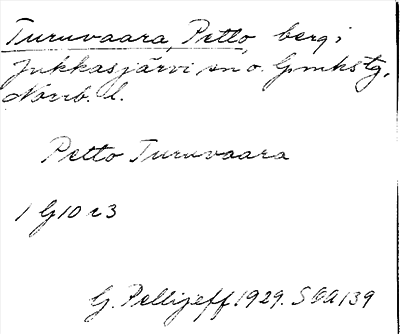 Turuvaara, Petto, berg i
Jukkasjärvi sn o. Gmkstg,
Norrb. l.
Petto Turuvaara
1 G10 c3
G. Pellijeff 1929. SOA 139